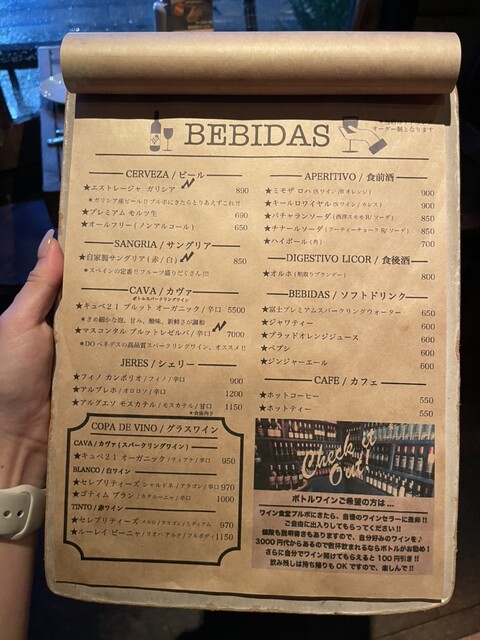 BEBIDAS
オーダー制となります
CERVEZA / ビール
★エストレージャ ガリシア 890
★ガリシア産ビール!!ブルボにきたらとりあえずこれ!!
★プレミアム モルツ生 690
★オールフリー (ノンアルコール) 650
SANGRIA / サングリア
★自家製サングリア (赤/白) 850
★スペインの定番!!フルーツ盛りだくさん!!!
CAVA / カヴァ
ボトルスパークリングワイン
★キュベ21 ブルット オーガニック / 辛口 5500
★きめ細かな泡、甘み、酸味、新鮮さが調和
★マスコンタル ブルットレゼルバ / 辛口 7000
★DOペネデスの高品質スパークリングワイン、オススメ!!
JERES / シェリー
★フィノ カンボリオ / フィノ / 辛口 900
★アルブレホ / オロロソ / 辛口 1200
★アルグエソ モスカテル / モスカテル / 甘口 1150
★食後向き
COPA DE VINO / グラスワイン
CAVA / カヴァ (スパークリングワイン)
★キュベ21 オーガニック / マカブオ / 辛口 950
BLANCO / 白ワイン
★セレブリティーズ シャルドネ / アラゴン / 辛口 970
★ゴティム ブラン / カタルーニャ / 辛口 1000
TINTO / 赤ワイン
★セレブリティーズ メルロ / アラゴン / ミディアム 970
★ルーレイ ビーニャ / リオハ アルタ / フルボディ 1150
APERITIVO / 食前酒
★ミモザ ロハ (S.ワイン/血オレンジ) 900
★キールロワイヤル (S.ワイン/カシス) 900
★パチャランソーダ (西洋スモモR/ソーダ) 850
★チナールソーダ (アーティーチョークR/ソーダ) 850
★ハイボール (角) 700
DIGESTIVO LICOR / 食後酒
★オルホ (粕取りブランデー) 800
BEBIDAS / ソフトドリンク
★富士プレミアムスパークリングウォーター 650
★ジャワティー 600
★ブラッドオレンジジュース 600
★ペプシ 600
★ジンジャーエール 600
CAFE / カフェ
★ホットコーヒー 550
★ホットティー 550
Check it Out!
ボトルワインご希望の方は...
ワイン食堂ブルボにきたら、自慢のワインセラーに進撃!!
ご自由に出入りしてもらってください!!
値段も説明書きもありますので、自分好みのワインを♪
3000円代からあるので数杯飲まれるならボトルがお勧め!
さらに自分でワイン開けてもらえると100円引き!!
飲み残しは持ち帰りもOKですので、楽しんで!!